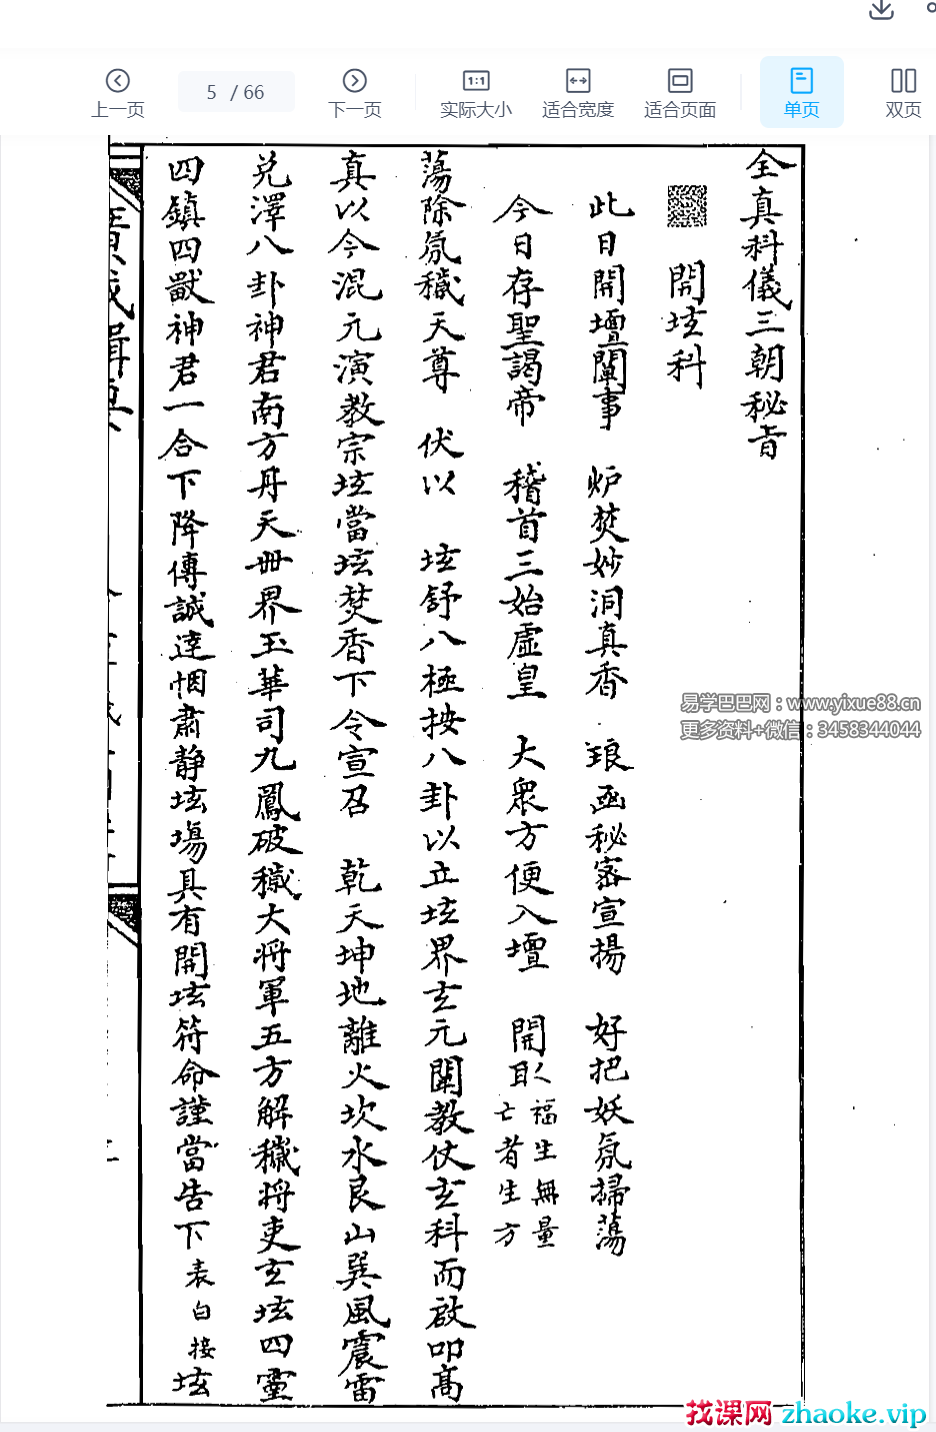 上一页
5 / 66
下一页
实际大小
适合宽度
适合页面
单页
双页
全真科儀三朝秘旨
開坛科
此日開壇闡事 炉焚妙洞真香 琅函秘密宣揚 好把妖氛掃蕩
今日存聖謁帝 稽首三始虛皇 大衆方便入壇 開取 福生無量 亡者生方
蕩除氛穢天尊 伏以 坛舒八極按八卦以立坛界玄元闡教仗玄科而啟叩高
真以今混元演教宗坛當坛焚香下令宣召 乾天坤地離火坎水艮山巽風震雷
兑澤八卦神君南方丹天世界玉華司九鳳破穢大将軍五方解穢将吏玄坛四靈
四鎮四獸神君一合下降傳誠達悃肅静坛場具有開坛符命謹當告下 表白接坛
易学巴巴网：www.yixue88.cn
更多资料+微信：3458344044
找课网 zhaoke.vip